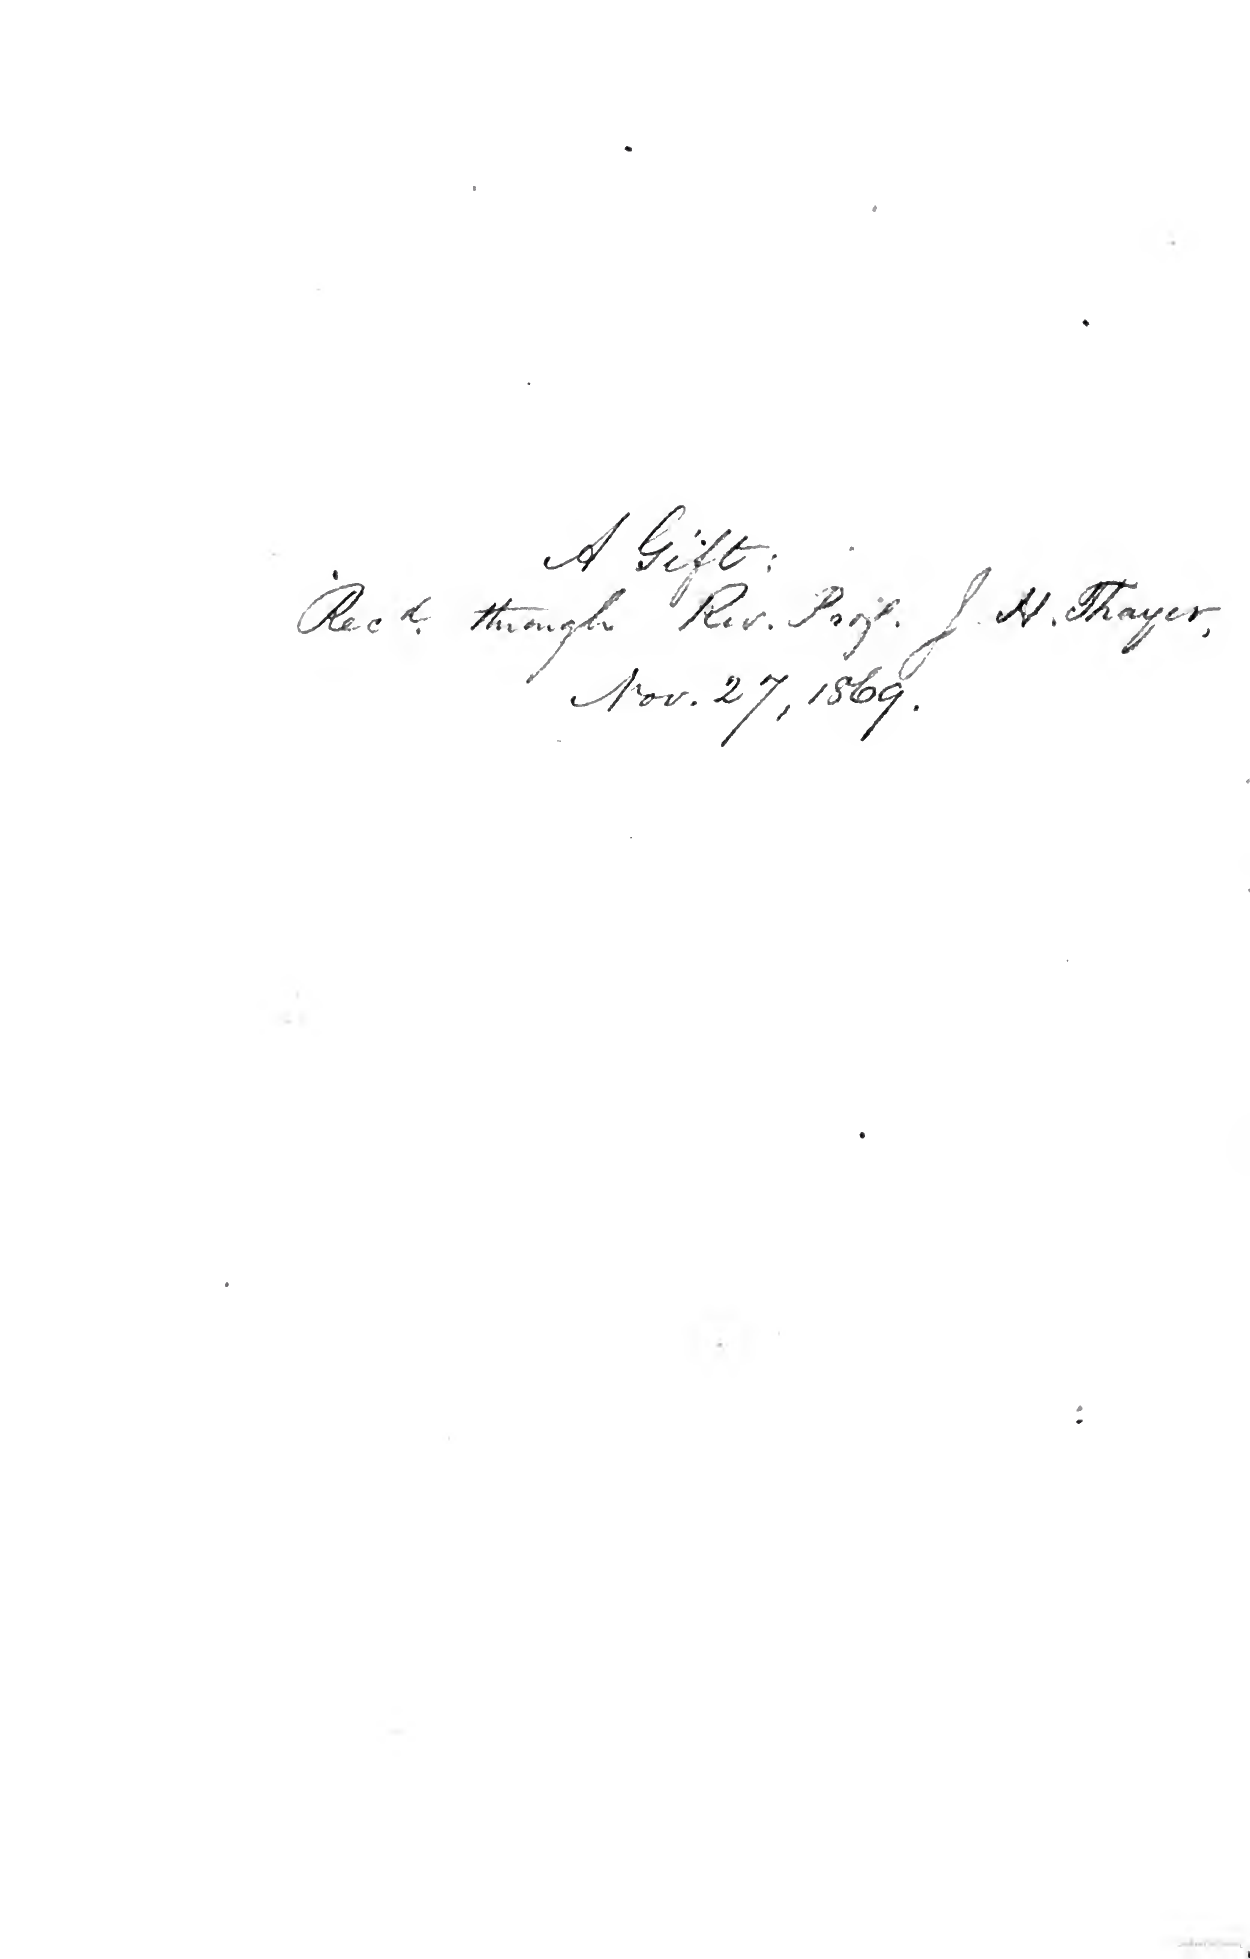 A Gift:
Rec'd. through Rev. Prof. J. H. Thayer,
Nov. 27, 1869.